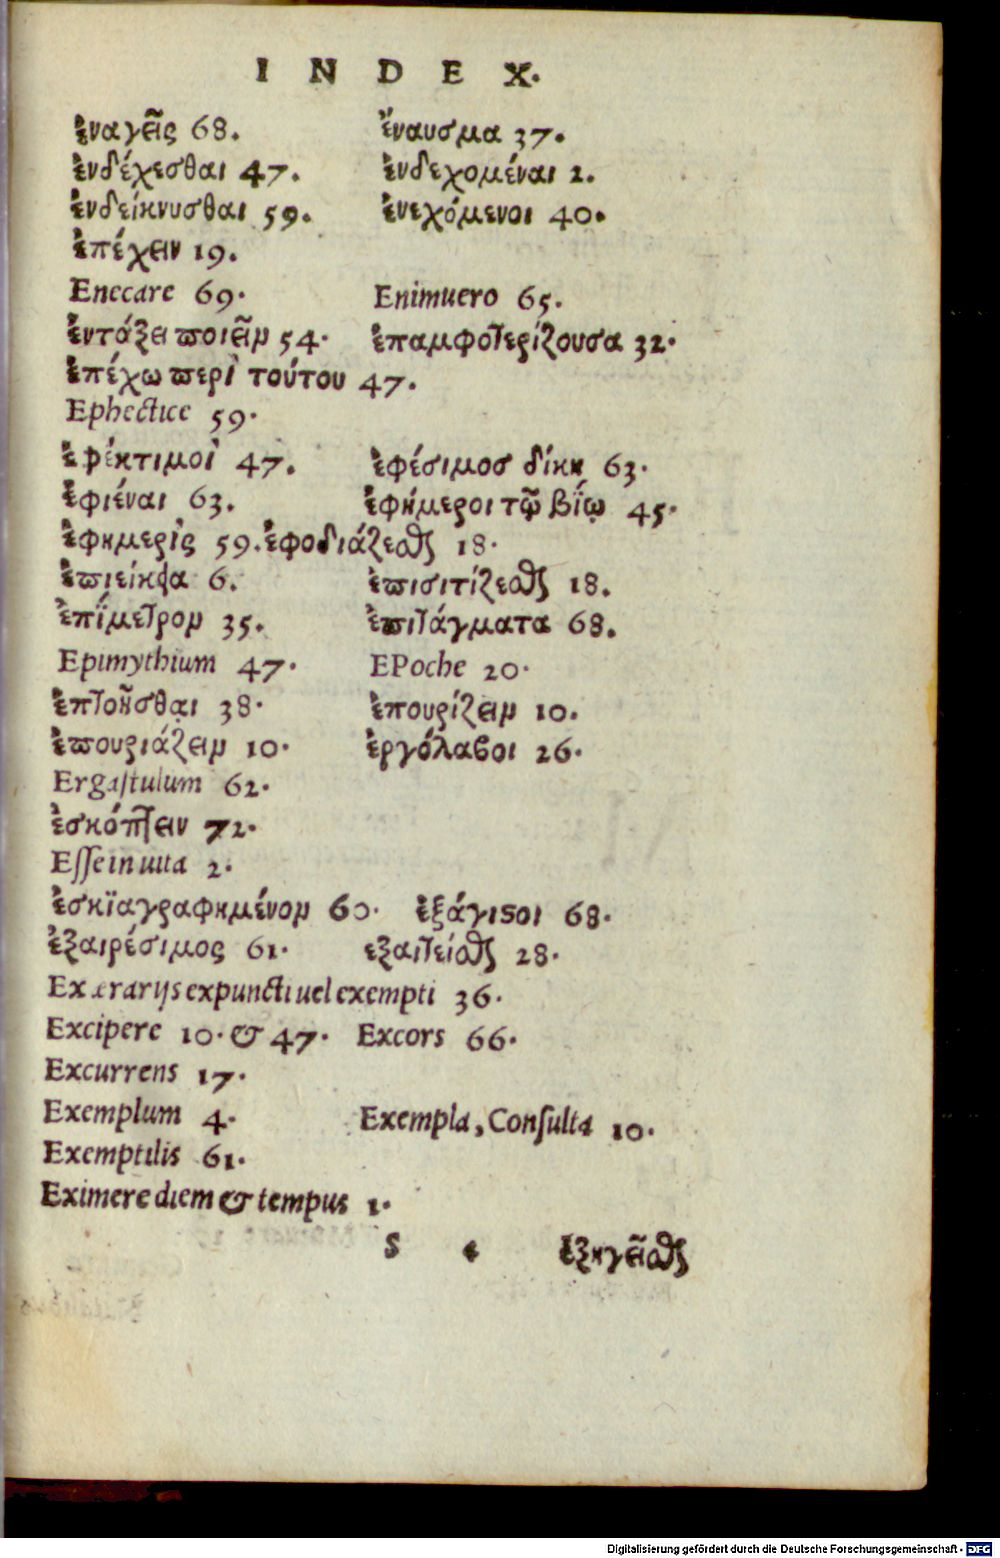 INDEX.
ἐναγεῖς 68. ἔναυσμα 37.
ἐνδέχεσθαι 47. ἐνδεχομέναι 2.
ἐνδείκνυσθαι 59. ἐνεχόμενοι 40.
ἐπέχειν 19.
Enecare 69. Enimuero 65.
ἐντάξει ποιεῖν 54. ἐπαμφοτερίζουσα 32.
ἐπέχω περὶ τούτου 47.
Ephectice 59.
ἐφέκτιμοὶ 47. ἐφέσιμοσ δίκη 63.
ἐφιέναι 63. ἐφήμεροι τῷ βίῳ 45.
ἐφημερὶς 59. ἐφοδιάζεσθαι 18.
ἐπιείκεια 6. ἐπισιτίζεσθαι 18.
ἐπίμετρον 35. ἐπιτάγματα 68.
Epimythium 47. EPoche 20.
ἐπτοῆσθαι 38. ἐπουρίζειν 10.
ἐπουριάζειν 10. ἐργόλαβοι 26.
Ergastulum 62.
ἐσκόπτειν 72.
Esse in uita 2.
ἐσκϊαγραφημένον 60. ἐξάγιστοι 68.
ἐξαιρέσιμος 61. εξαιτείσθαι 28.
Ex ærarijs expuncti uel exempti 36.
Excipere 10. & 47. Excors 66.
Excurrens 17.
Exemplum 4. Exempla, Consulta 10.
Exemptilis 61.
Eximere diem & tempus 1.
S 4 ἐξηγεῖσθαι
Digitalisierung gefördert durch die Deutsche Forschungsgemeinschaft - DFG